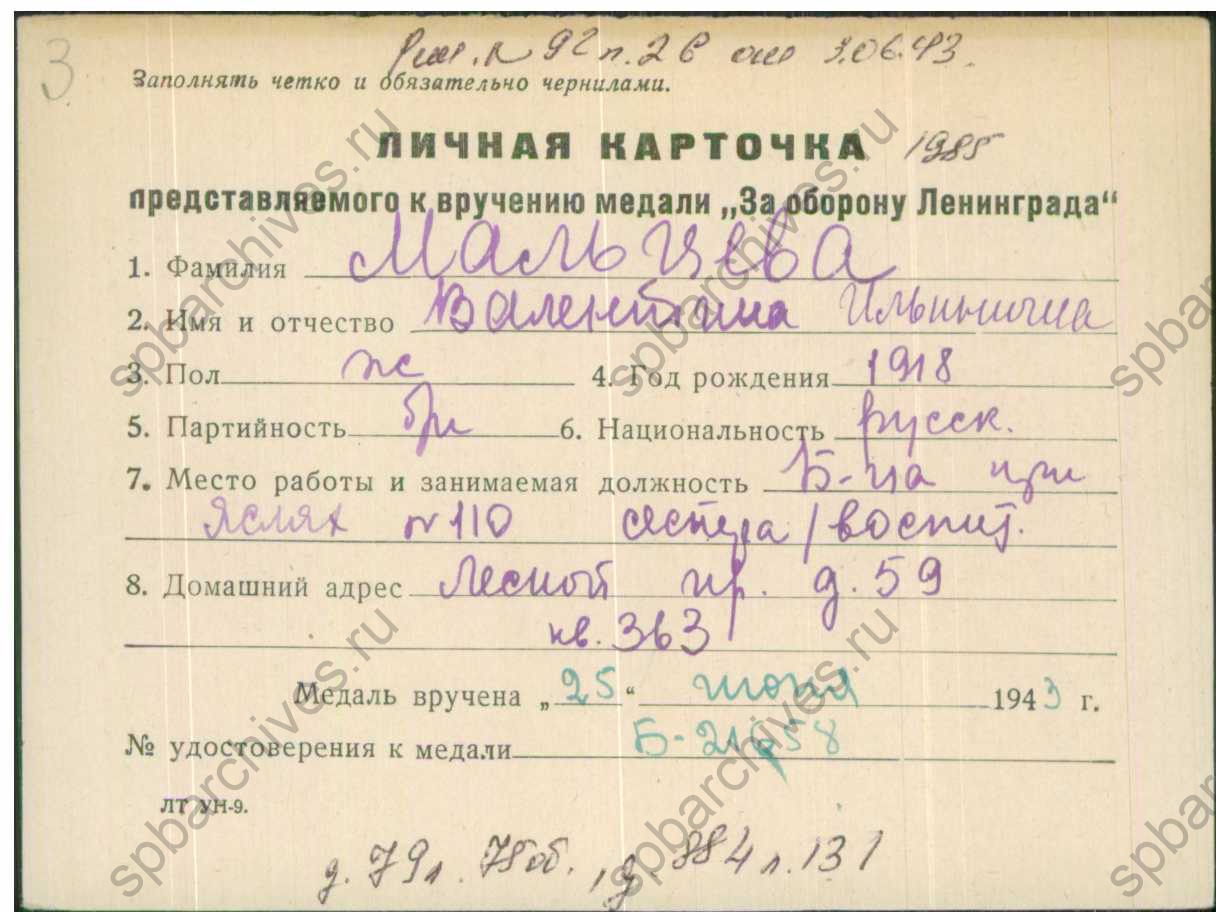 3
Реш. № 92 п. 26 от 3.06.43.
Заполнять четко и обязательно чернилами.
ЛИЧНАЯ КАРТОЧКА 1985
представляемого к вручению медали „За оборону Ленинграда“
1. Фамилия Мальцева
2. Имя и отчество Валентина Ильинична
3. Пол ж 4. Год рождения 1918
5. Партийность б/п 6. Национальность русск.
7. Место работы и занимаемая должность Б-ца при
Яслях № 110 сестра / воспит.
8. Домашний адрес Лесной пр. д. 59
кв. 363
Медаль вручена „25“ июня 1943 г.
№ удостоверения к медали Б-21658
ЛТ УН-9.
д. 79 л. 78об., д. 884 л. 131
spbarchives.ru
spbarchives.ru
spbarchives.ru
spbarchives.ru